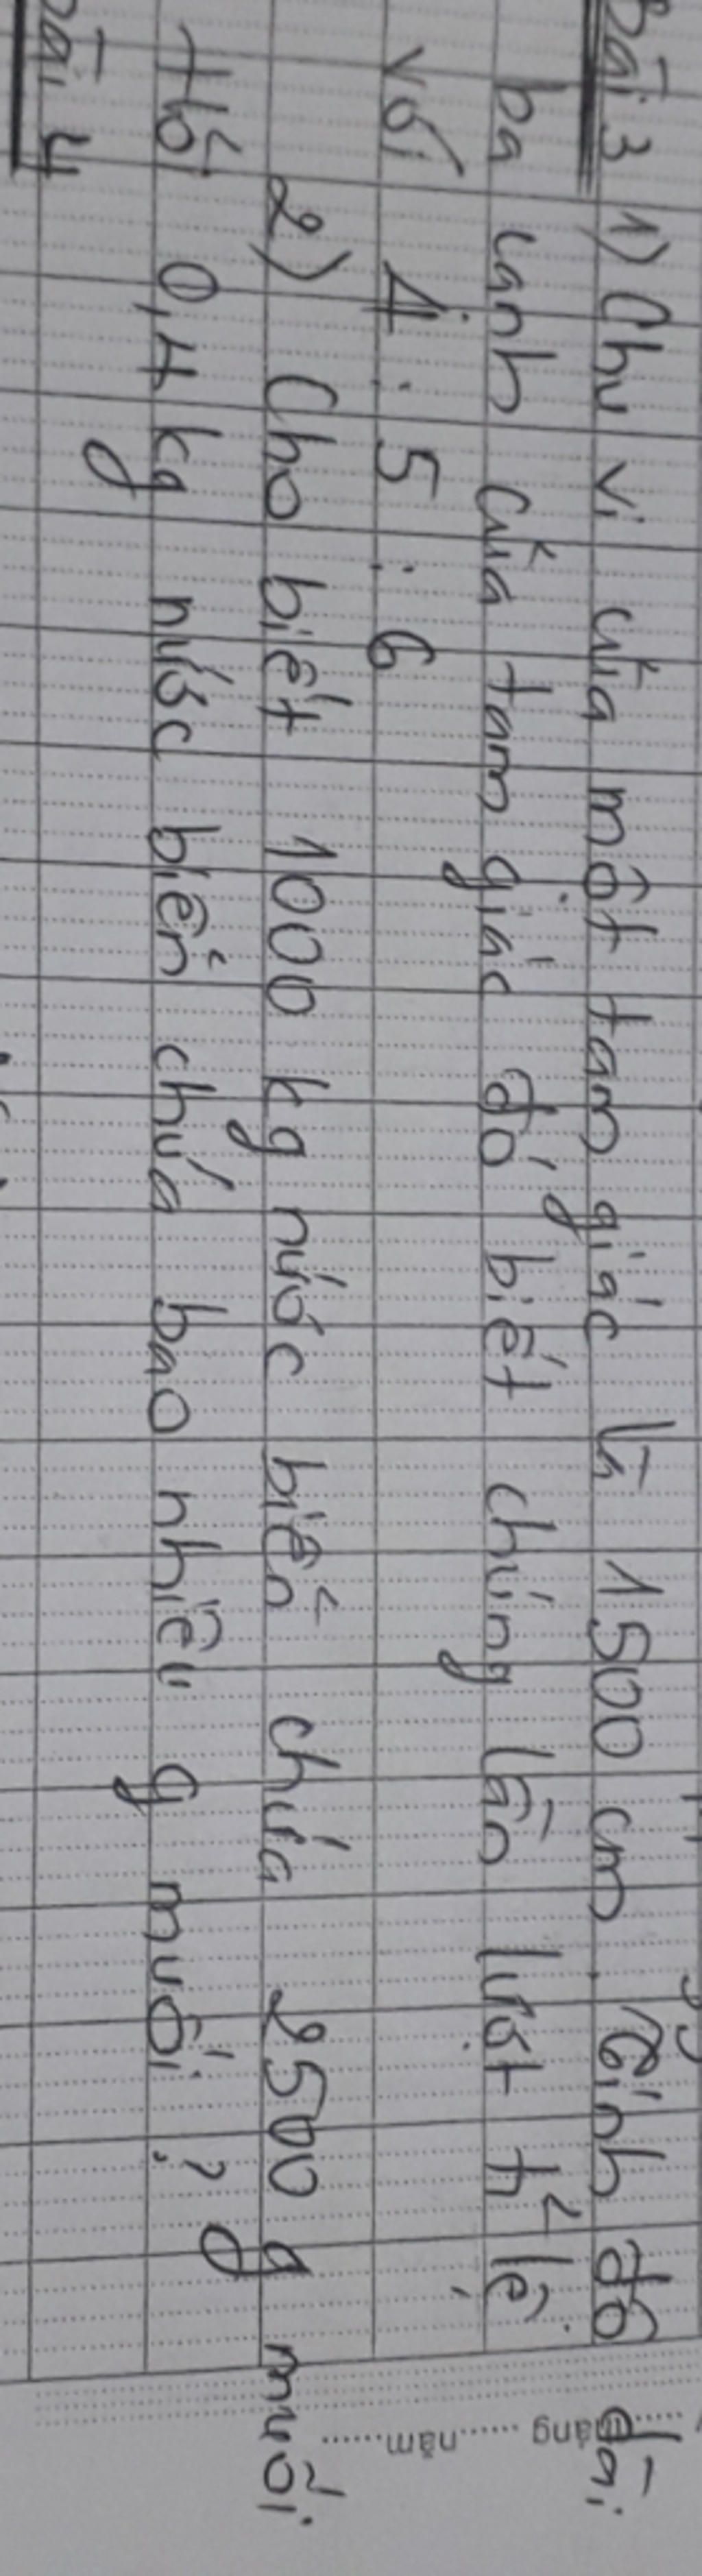 Bài 3 1) Chu vi của một tam giác là 1500 cm. Tính độ dài
ba cạnh của tam giác đó biết chúng lần lượt tỉ lệ
với 4 : 5 : 6
2) Cho biết 1000 kg nước biển chứa 2500 g muối
Hỏi 0,4 kg nước biển chứa bao nhiêu g muối ?
Bài 4
năm